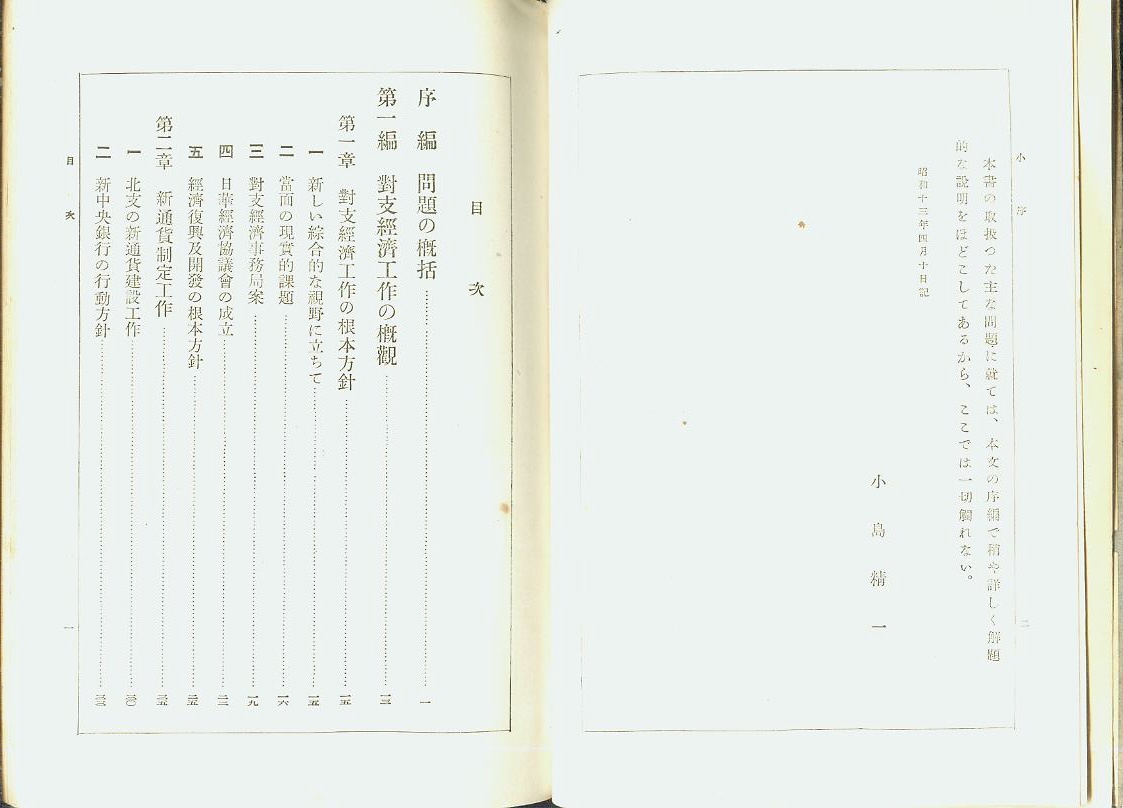 小序
本書の取扱つた主な問題に就ては、本文の序編で稍や詳しく解題
的な説明をほどこしてあるから、ここでは一切觸れない。
昭和十三年四月十日記
小島精一
二
目次
序編 問題の概括……一
第一編 對支經濟工作の概觀……一三
第一章 對支經濟工作の根本方針……一五
一 新しい綜合的な視野に立ちて……一五
二 當面の現實的課題……一六
三 對支經濟事務局案……一九
四 日華經濟協議會の成立……二三
五 經濟復興及開發の根本方針……二五
第二章 新通貨制定工作……
一 北支の新通貨建設工作……
二 新中央銀行の行動方針……
目次
一